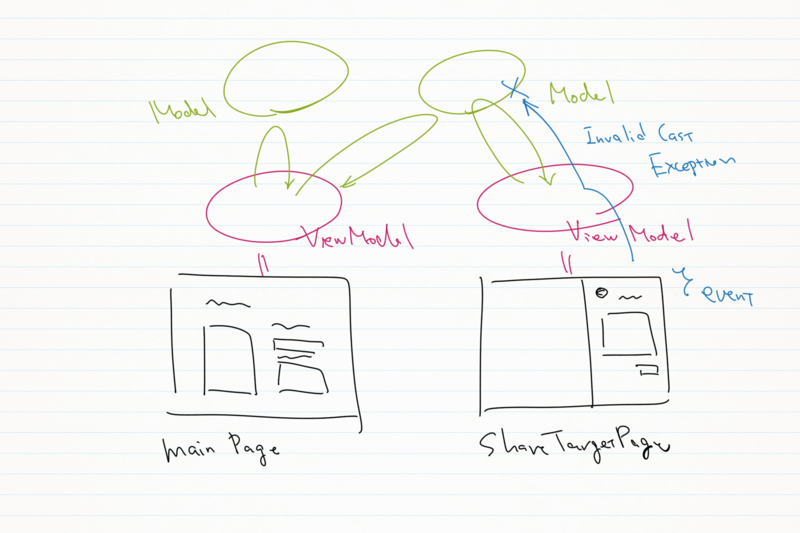 Model
Model
Invalid Cast
Exception
ViewModel
View Model
event
Main Page
ShareTargetPage